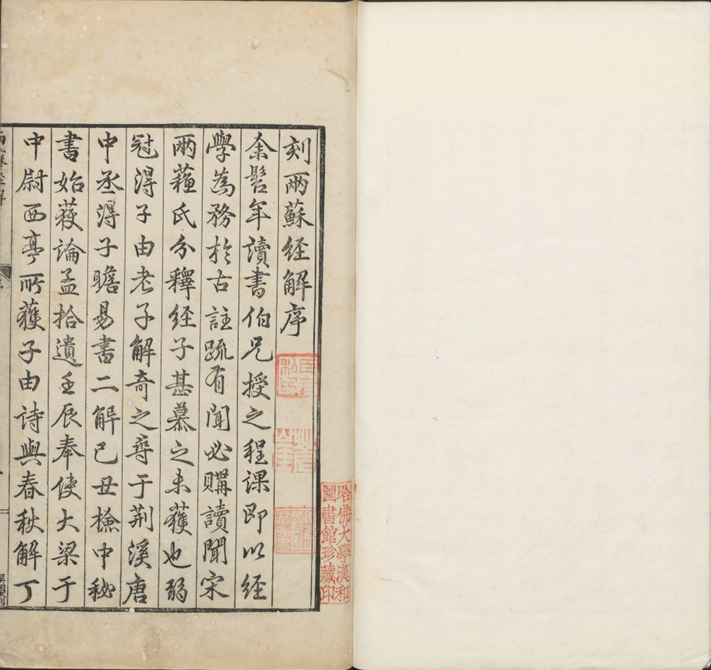 刻兩蘇經解序
余髫年讀書伯兄授之程課即以經
學為務於古註䟽有聞必購讀聞宋
兩蘓氏分釋經子甚慕之未獲也弱
冠淂子由老子解奇之尋于荆溪唐
中丞淂子瞻易書二解己丑檢中秘
書始獲論孟拾遺壬辰奉使大梁于
中尉西亭所獲子由詩與春秋解丁
哈佛大學漢和
圖書館珍藏印